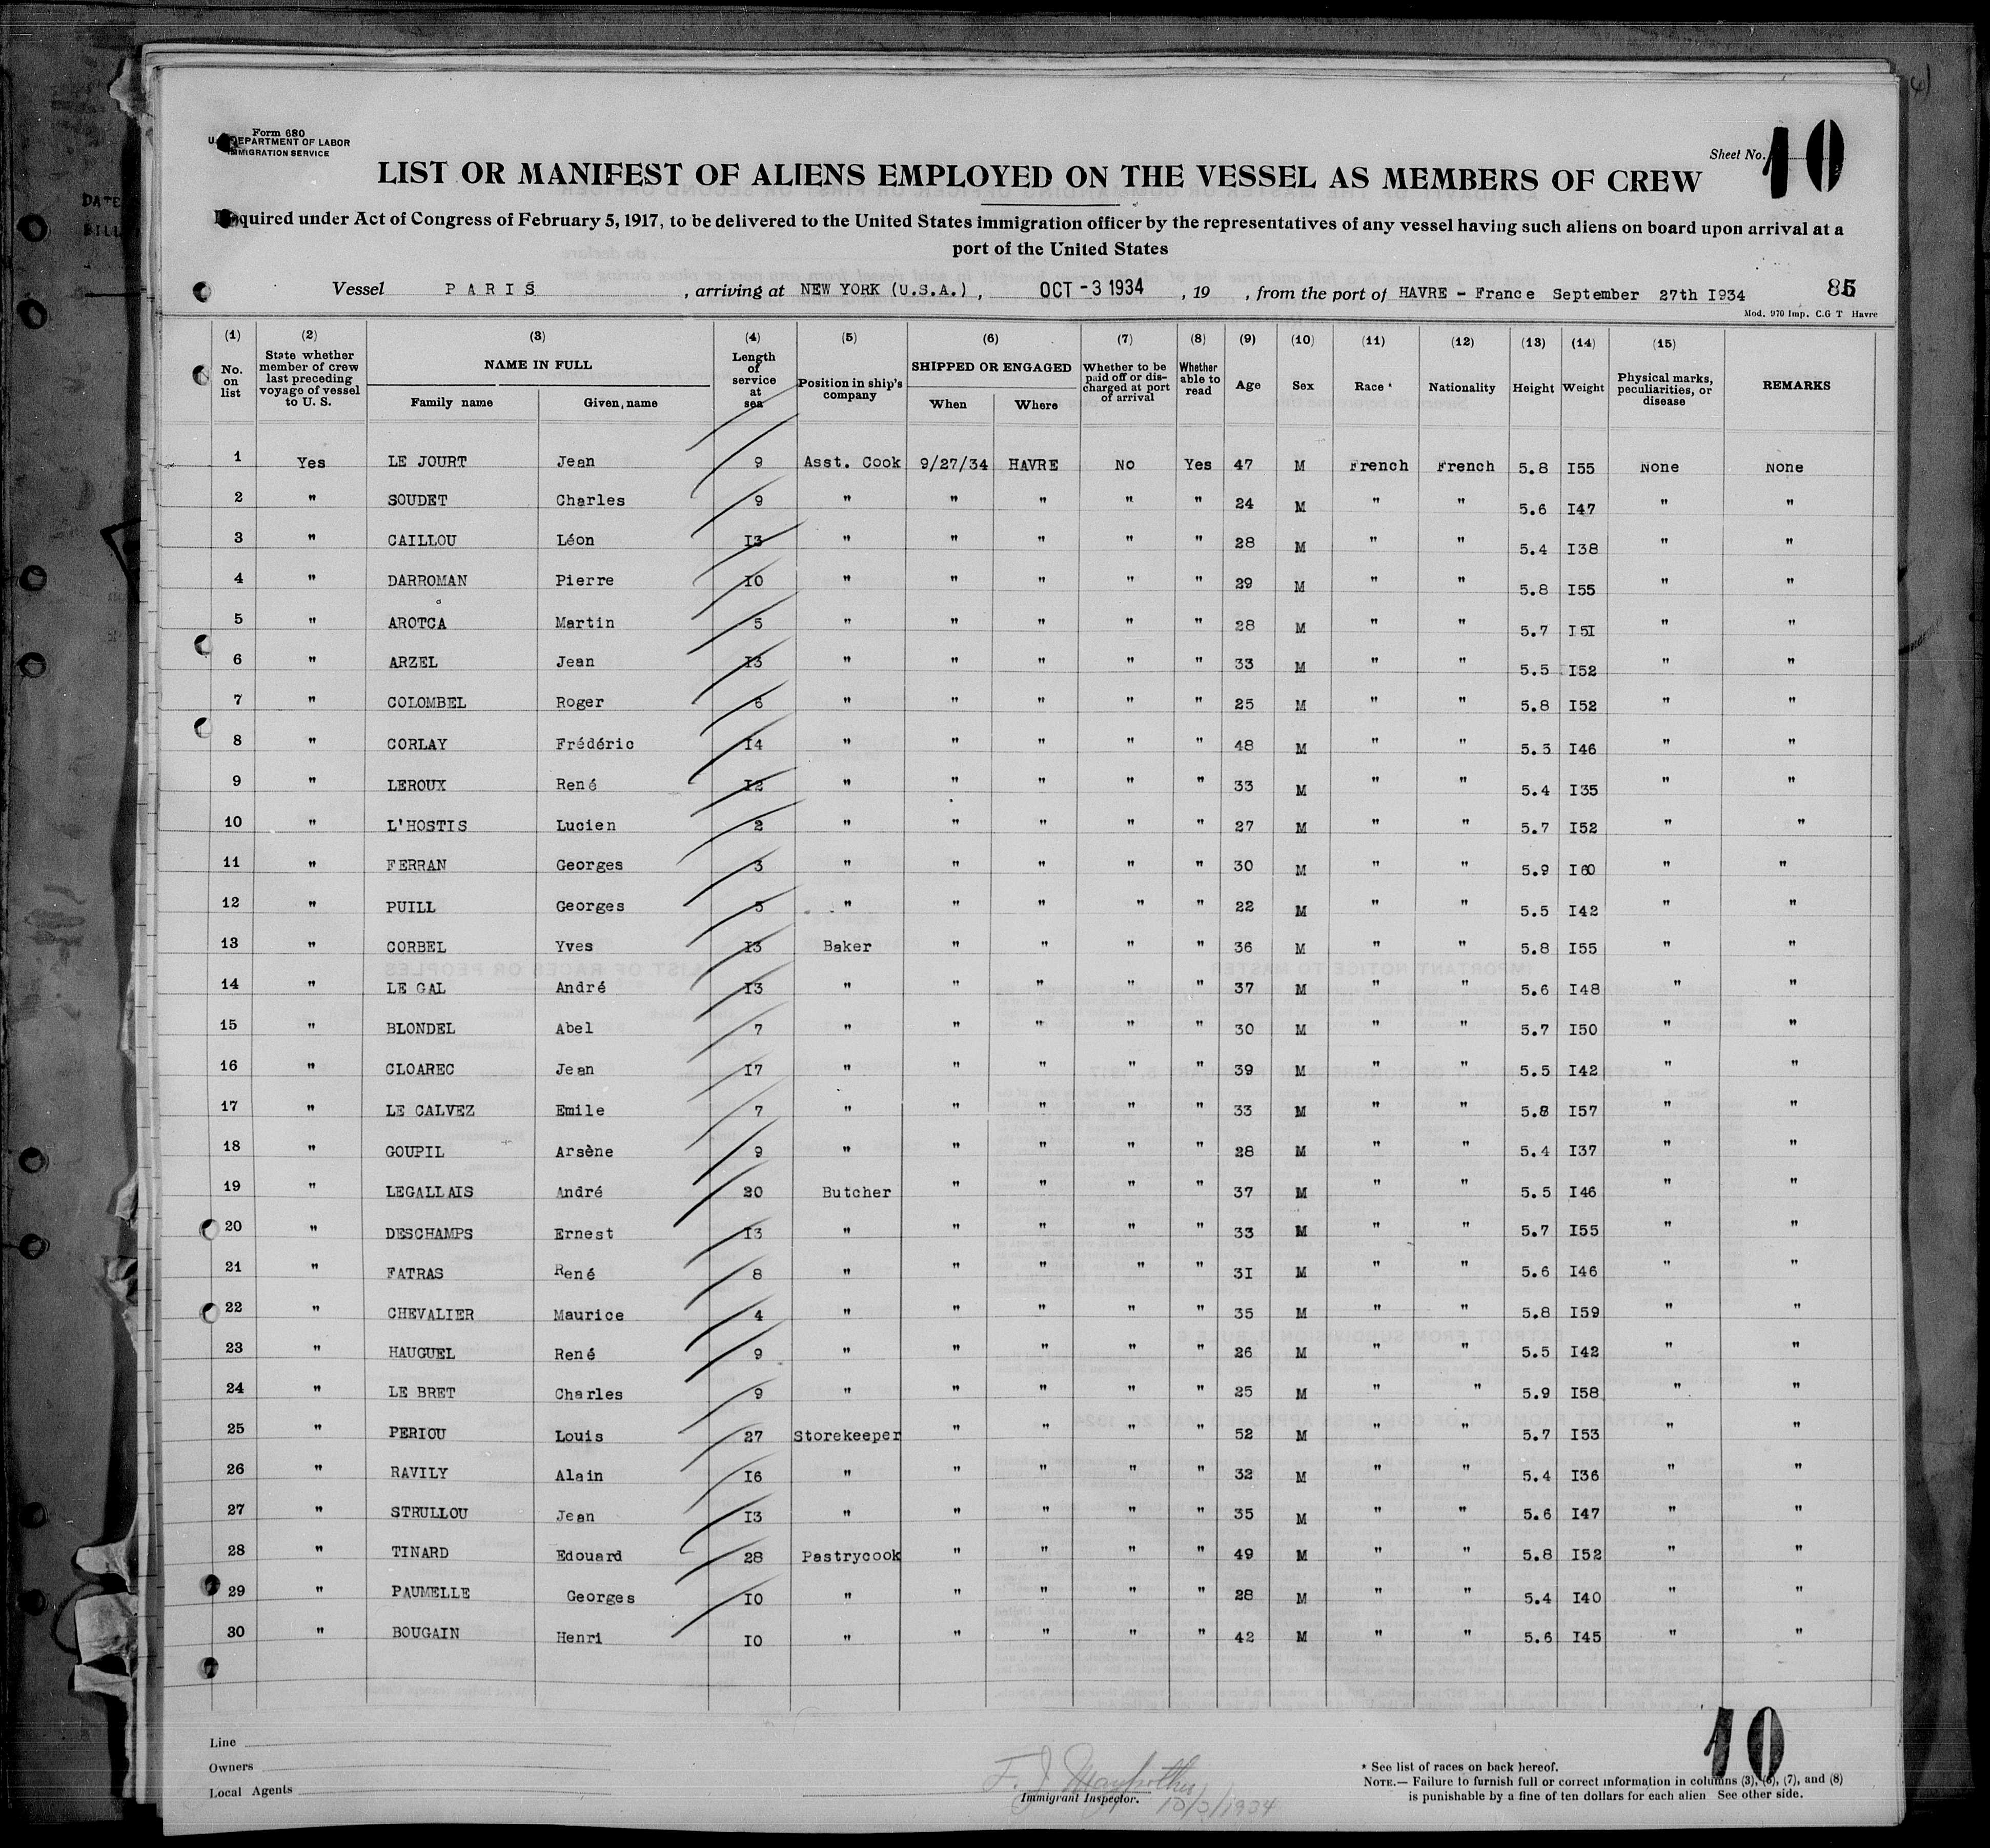 Form 680
U.S. DEPARTMENT OF LABOR
IMMIGRATION SERVICE
Sheet No. 10
LIST OR MANIFEST OF ALIENS EMPLOYED ON THE VESSEL AS MEMBERS OF CREW
Required under Act of Congress of February 5, 1917, to be delivered to the United States immigration officer by the representatives of any vessel having such aliens on board upon arrival at a
port of the United States
Vessel PARIS , arriving at NEW YORK (U.S.A.) , OCT -3 1934 , 19 , from the port of HAVRE - France September 27th I934
Mod. 970 Imp. C.G T Havre
(1) (2) (3) (4) (5) (6) (7) (8) (9) (10) (11) (12) (13) (14) (15)
No. on list State whether member of crew last preceding voyage of vessel to U. S. NAME IN FULL Family name Given name Length of service at sea Position in ship's company SHIPPED OR ENGAGED When Where Whether to be paid off or discharged at port of arrival Whether able to read Age Sex Race * Nationality Height Weight Physical marks, peculiarities, or disease REMARKS
1 Yes LE JOURT Jean 9 Asst. Cook 9/27/34 HAVRE No Yes 47 M French French 5.8 I55 None None
2 " SOUDET Charles 9 " " " " " 24 M " " 5.6 I47 " "
3 " CAILLOU Léon I3 " " " " " 28 M " " 5.4 I38 " "
4 " DARROMAN Pierre I0 " " " " " 29 M " " 5.8 I55 " "
5 " AROTCA Martin 5 " " " " " 28 M " " 5.7 I5I " "
6 " ARZEL Jean I3 " " " " " 33 M " " 5.5 I52 " "
7 " COLOMBEL Roger 6 " " " " " 25 M " " 5.8 I52 " "
8 " CORLAY Frédéric I4 " " " " " 48 M " " 5.5 I46 " "
9 " LEROUX René I2 " " " " " 33 M " " 5.4 I35 " "
10 " L'HOSTIS Lucien 2 " " " " " 27 M " " 5.7 I52 " "
11 " FERRAN Georges 3 " " " " " 30 M " " 5.9 I60 " "
12 " PUILL Georges 5 " " " " " 22 M " " 5.5 I42 " "
13 " CORBEL Yves I3 Baker " " " " 36 M " " 5.8 I55 " "
14 " LE GAL André I3 " " " " " 37 M " " 5.6 I48 " "
15 " BLONDEL Abel 7 " " " " " 30 M " " 5.7 I50 " "
16 " CLOAREC Jean I7 " " " " " 39 M " " 5.5 I42 " "
17 " LE CALVEZ Emile 7 " " " " " 33 M " " 5.8 I57 " "
18 " GOUPIL Arsène 9 " " " " " 28 M " " 5.4 I37 " "
19 " LEGALLAIS André 20 Butcher " " " " 37 M " " 5.5 I46 " "
20 " DESCHAMPS Ernest I3 " " " " " 33 M " " 5.7 I55 " "
21 " FATRAS René 8 " " " " " 3I M " " 5.6 I46 " "
22 " CHEVALIER Maurice 4 " " " " " 35 M " " 5.8 I59 " "
23 " HAUGUEL René 9 " " " " " 26 M " " 5.5 I42 " "
24 " LE BRET Charles 9 " " " " " 25 M " " 5.9 I58 " "
25 " PERIOU Louis 27 Storekeeper " " " " 52 M " " 5.7 I53 " "
26 " RAVILY Alain I6 " " " " " 32 M " " 5.4 I36 " "
27 " STRULLOU Jean I3 " " " " " 35 M " " 5.6 I47 " "
28 " TINARD Edouard 28 Pastrycook " " " " 49 M " " 5.8 I52 " "
29 " PAUMELLE Georges I0 " " " " " 28 M " " 5.4 I40 " "
30 " BOUGAIN Henri I0 " " " " " 42 M " " 5.6 I45 " "
10
Line
Owners
Local Agents
F. J.
Immigrant Inspector. 10/3/1934
* See list of races on back hereof.
NOTE.— Failure to furnish full or correct information in columns (3), (6), (7), and (8)
is punishable by a fine of ten dollars for each alien See other side.